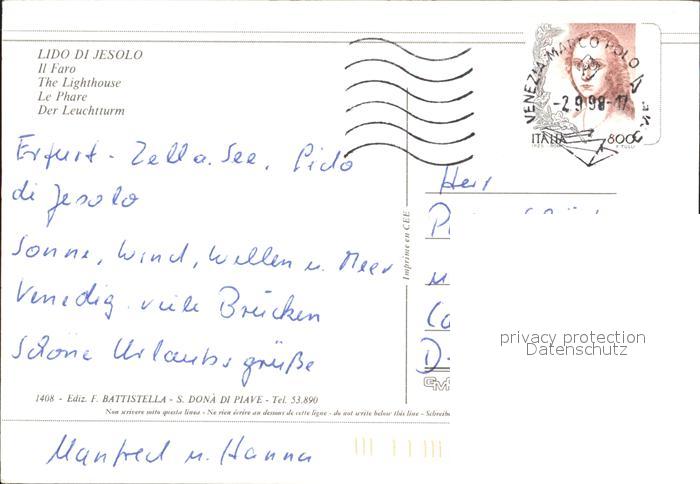 LIDO DI JESOLO
Il Faro
The Lighthouse
Le Phare
Der Leuchtturm
Erfurt - Zell a. See, Lido
di Jesolo
Sonne, Wind, Wellen u. Meer
Venedig viele Brücken
Schöne Urlaubsgrüße
1408 - Ediz. F. BATTISTELLA - S. DONÀ DI PIAVE - Tel. 53.890
Non scrivere sotto questa linea - Ne rien écrire au dessous de cette ligne - do not write below this line - Schreib
Manfred u. Hanna
Imprimé en CEE
VENEZIA MARCO POLO
-2.9.98-17
ITALIA 800
Herr
P
u
Ca
D-
privacy protection
Datenschutz